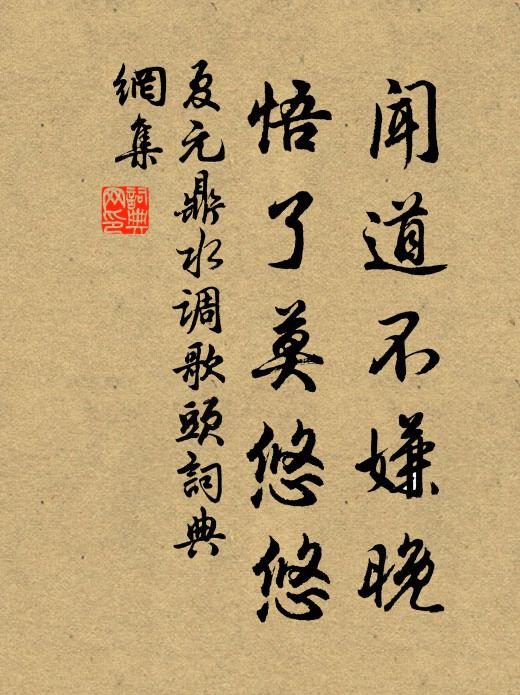 聞道不嫌晚
悟了莫悠悠
夏元鼎水调歌頭詞典
網集
詞典
网印